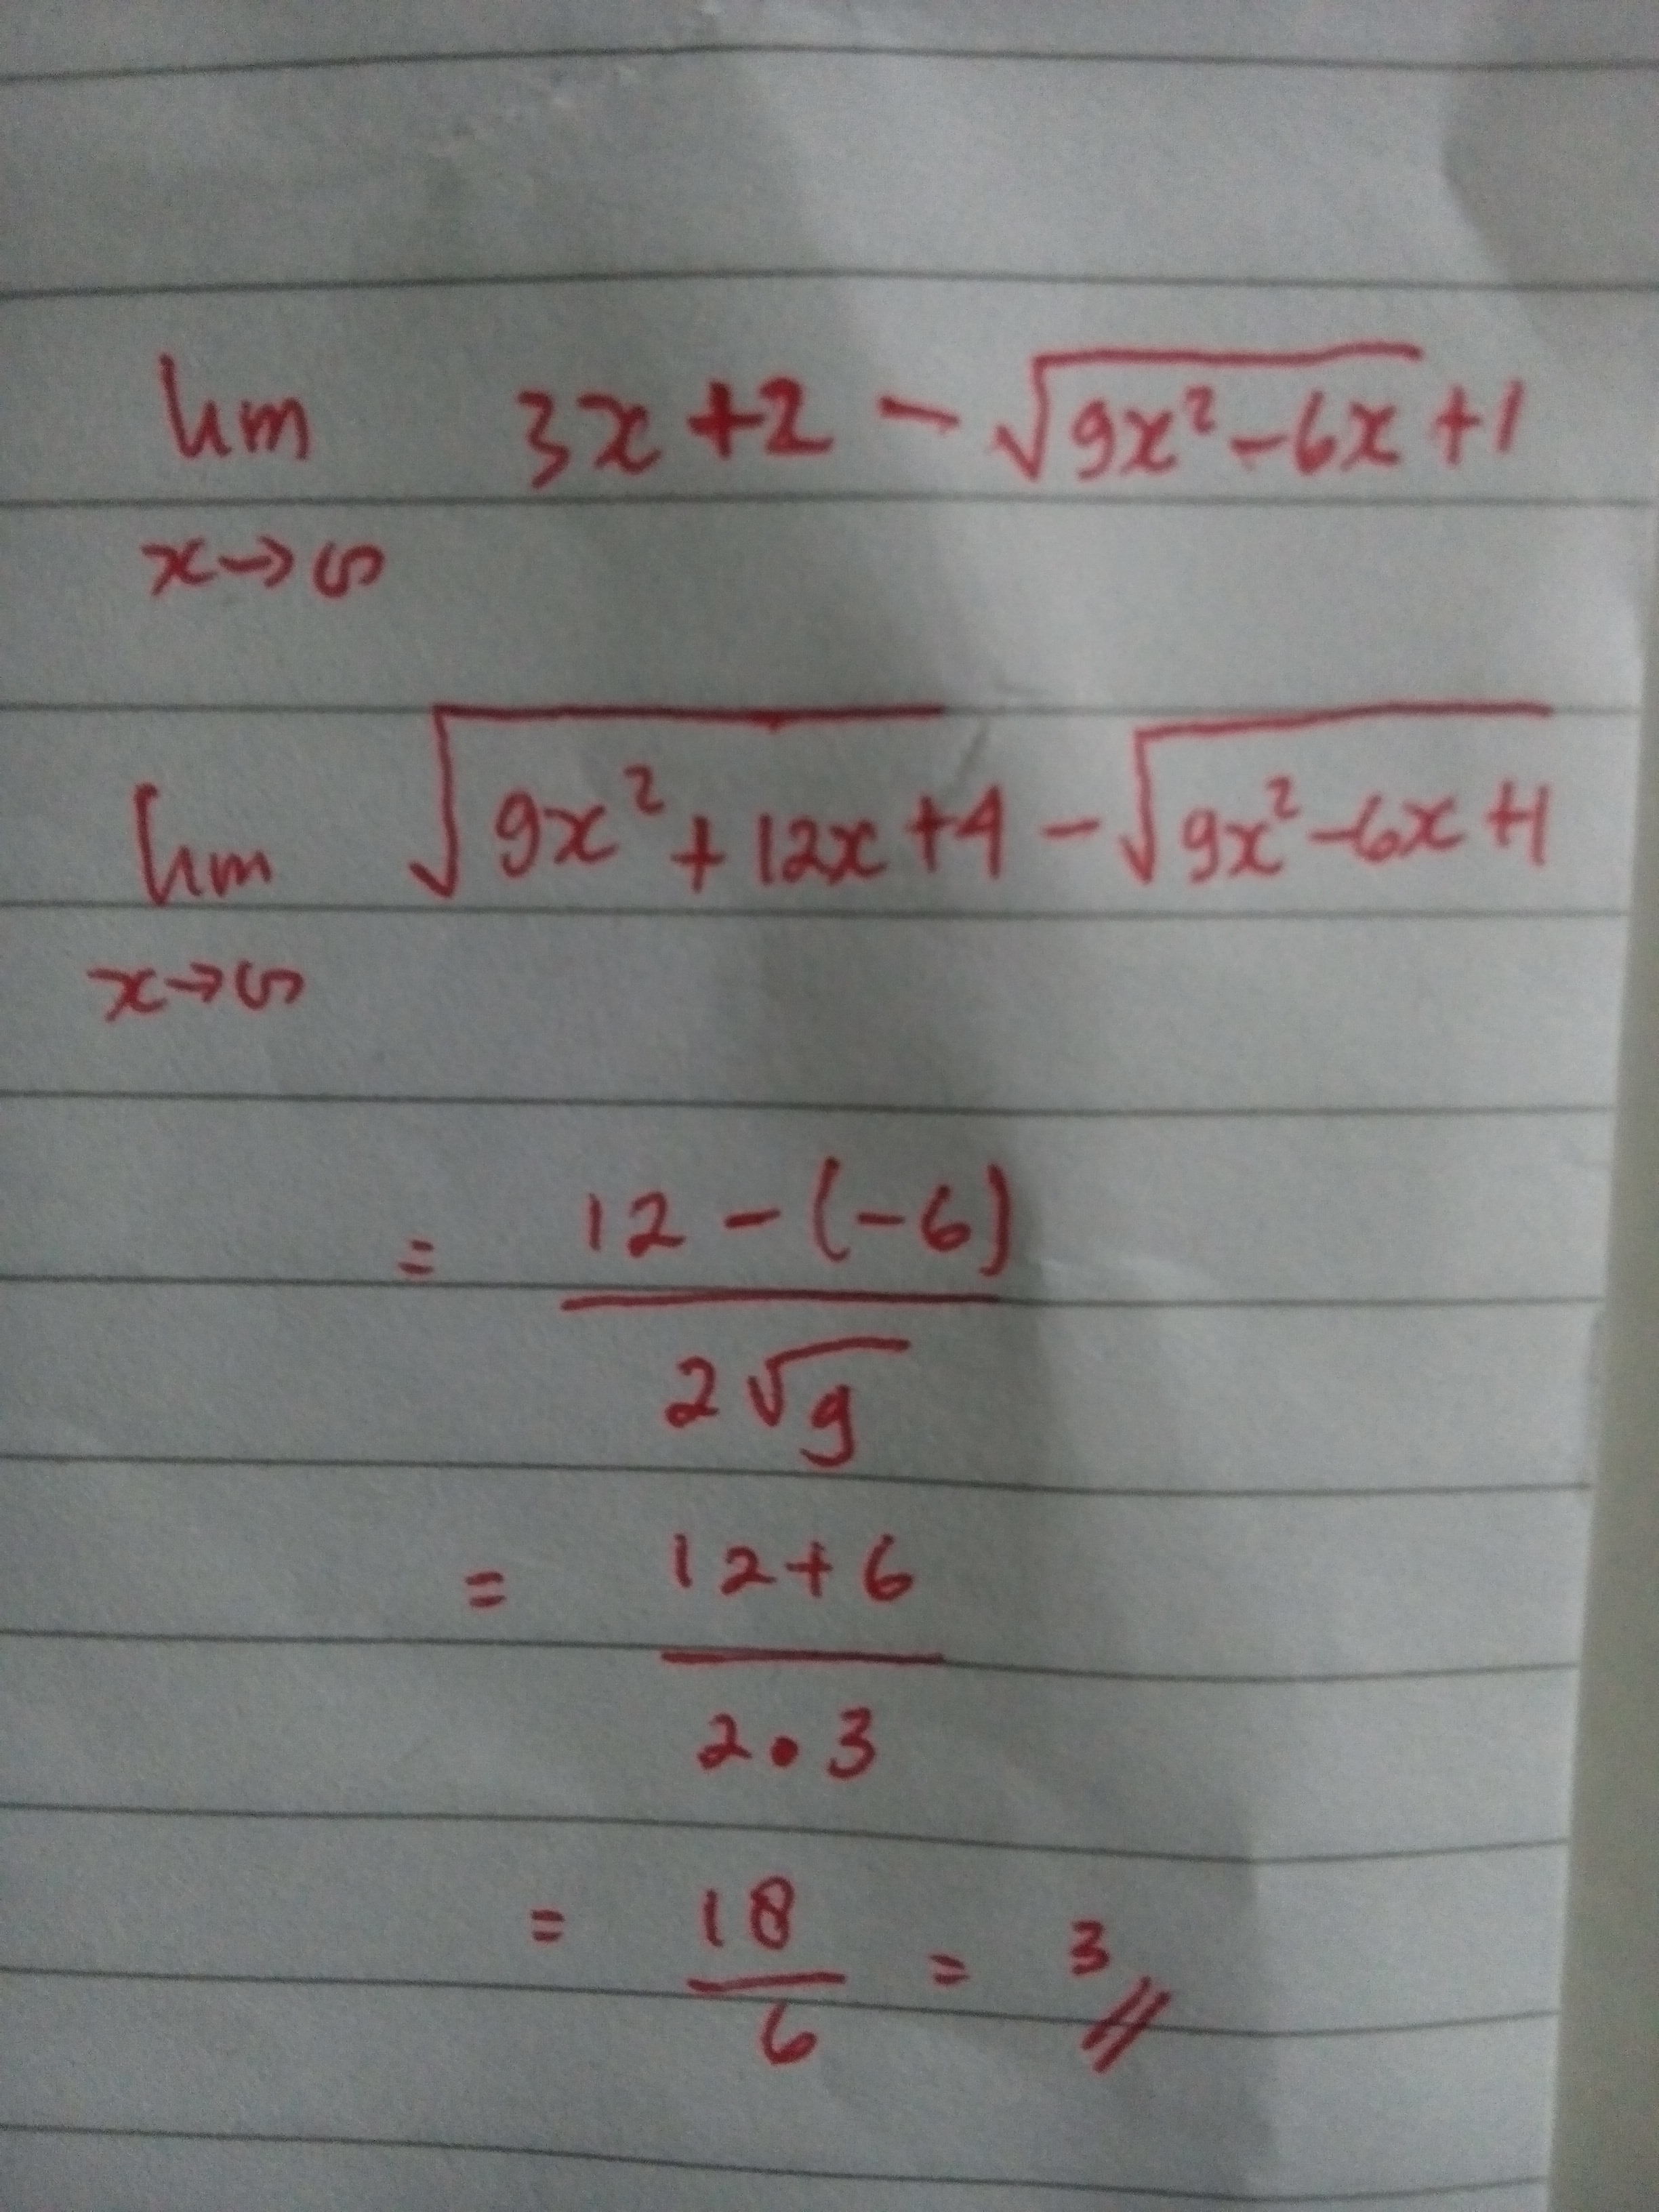 lim 3x + 2 - √(9x² - 6x) + 1
x → ∞
lim √(9x² + 12x + 4) - √(9x² - 6x + 1)
x → ∞
= 12 - (-6) / 2√9
= 12 + 6 / 2 • 3
= 18 / 6 = 3 //